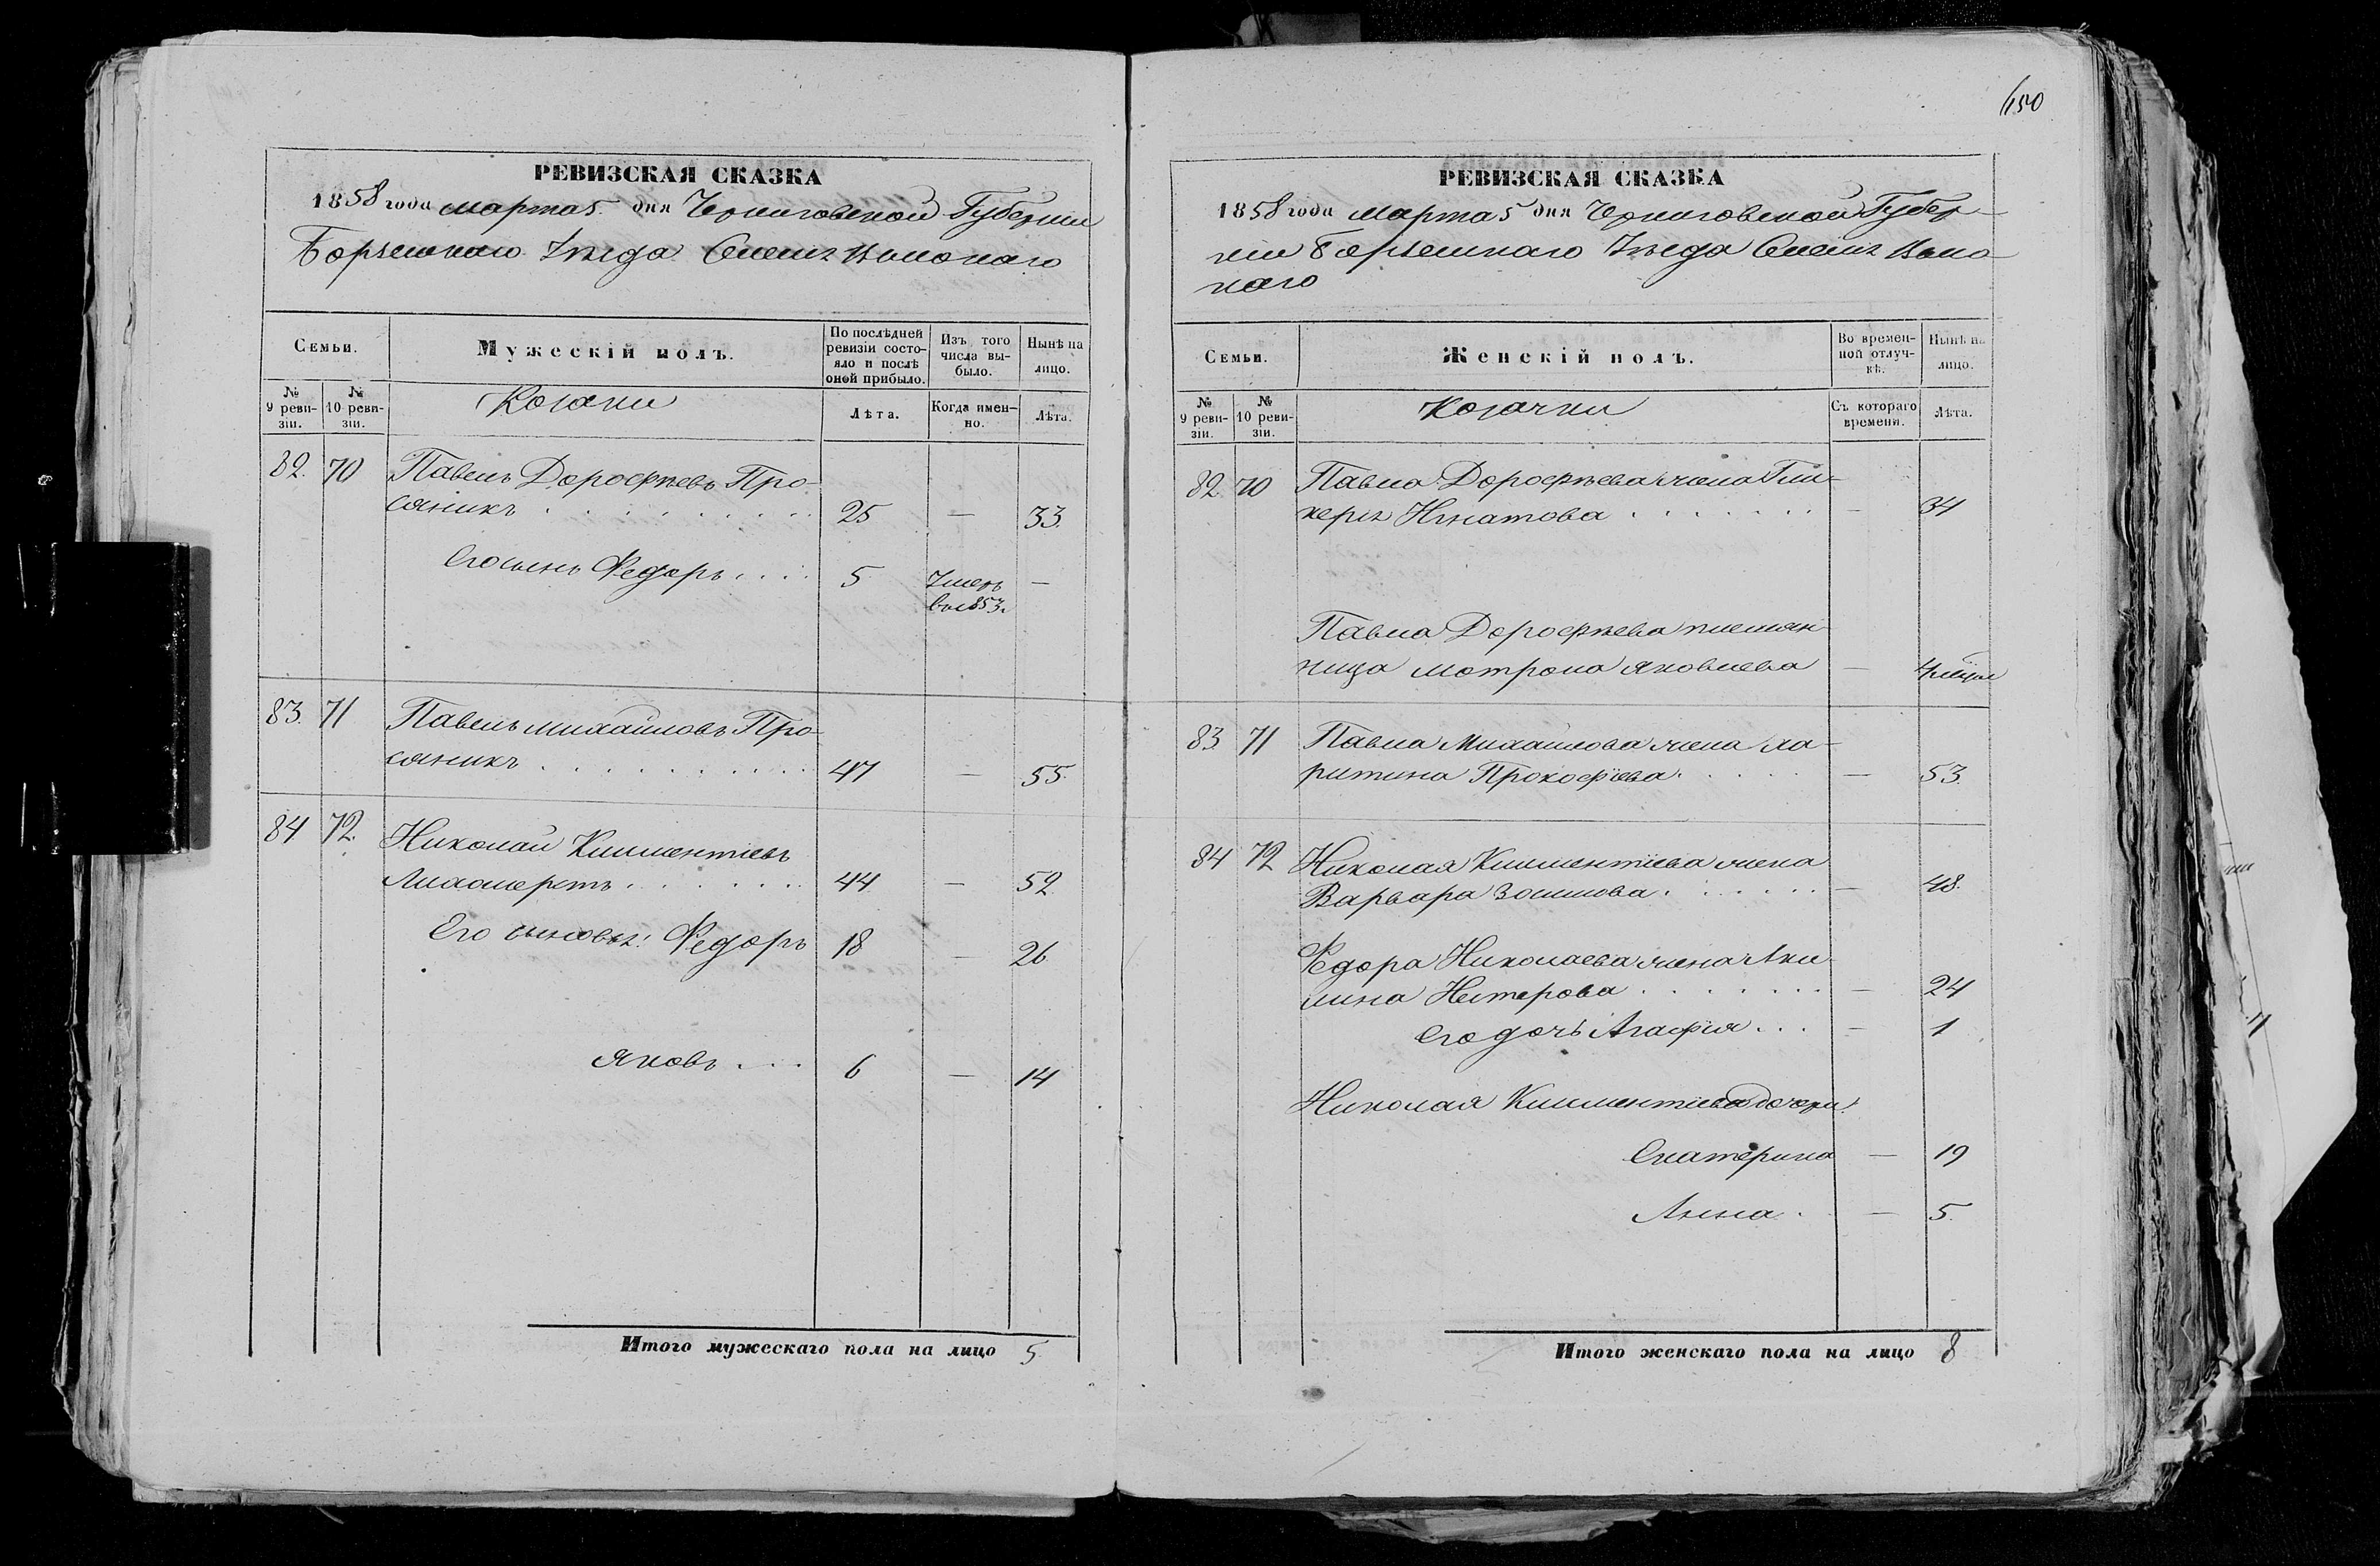 150
РЕВИЗСКАЯ СКАЗКА
1858 года марта 5 дня Черниговской Губернии
Борзенскаго Уѣзда
Семьи.
Мужескій полъ.
По послѣдней ревизіи состояло и послѣ оной прибыло.
Изъ того числа выбыло.
Нынѣ на лицо.
№ 9 ревизіи.
№ 10 ревизіи.
Козаки
Лѣта.
Когда именно.
Лѣта.
82. 70 Павелъ Дорофѣевъ Про-
сяникъ . . . . . . . . . . 25 — 33.
Его сынъ Федоръ . . . . 5 Умеръ —
въ 1853.
83. 71 Павелъ Михайловъ Про-
сяникъ . . . . . . . . . . 47 — 55.
84 72. Николай Климентіевъ
. . . . . . . 44 — 52.
Его сыновья: Федоръ 18 — 26.
Яковъ . . . 6 — 14
Итого мужескаго пола на лицо 5
РЕВИЗСКАЯ СКАЗКА
1858 года марта 5 дня Черниговской Губер-
ніи Борзенскаго Уѣзда
каго
Семьи.
Женскій полъ.
Во временной отлучкѣ.
Нынѣ на лицо.
№ 9 ревизіи.
№ 10 ревизіи.
Козачки
Съ котораго времени.
Лѣта.
82 70 Павла Дорофѣева жена Гли-
керія Игнатова . . . . . . . — 34
Павла Дорофѣева племян-
ница Мотрона Яковлева —
83. 71 Павла Михайлова жена Ха-
ритина Прокофіева . . . . . — 53.
84 72 Николая Климентіева жена
Варвара . . . . . . — 48.
Федора Николаева жена Аки-
лина Нестерова . . . . . . . — 24
Его дочь Агафія . . . — 1
Николая Климентіева дочери:
Екатерина — 19
Анна . — 5.
Итого женскаго пола на лицо 8